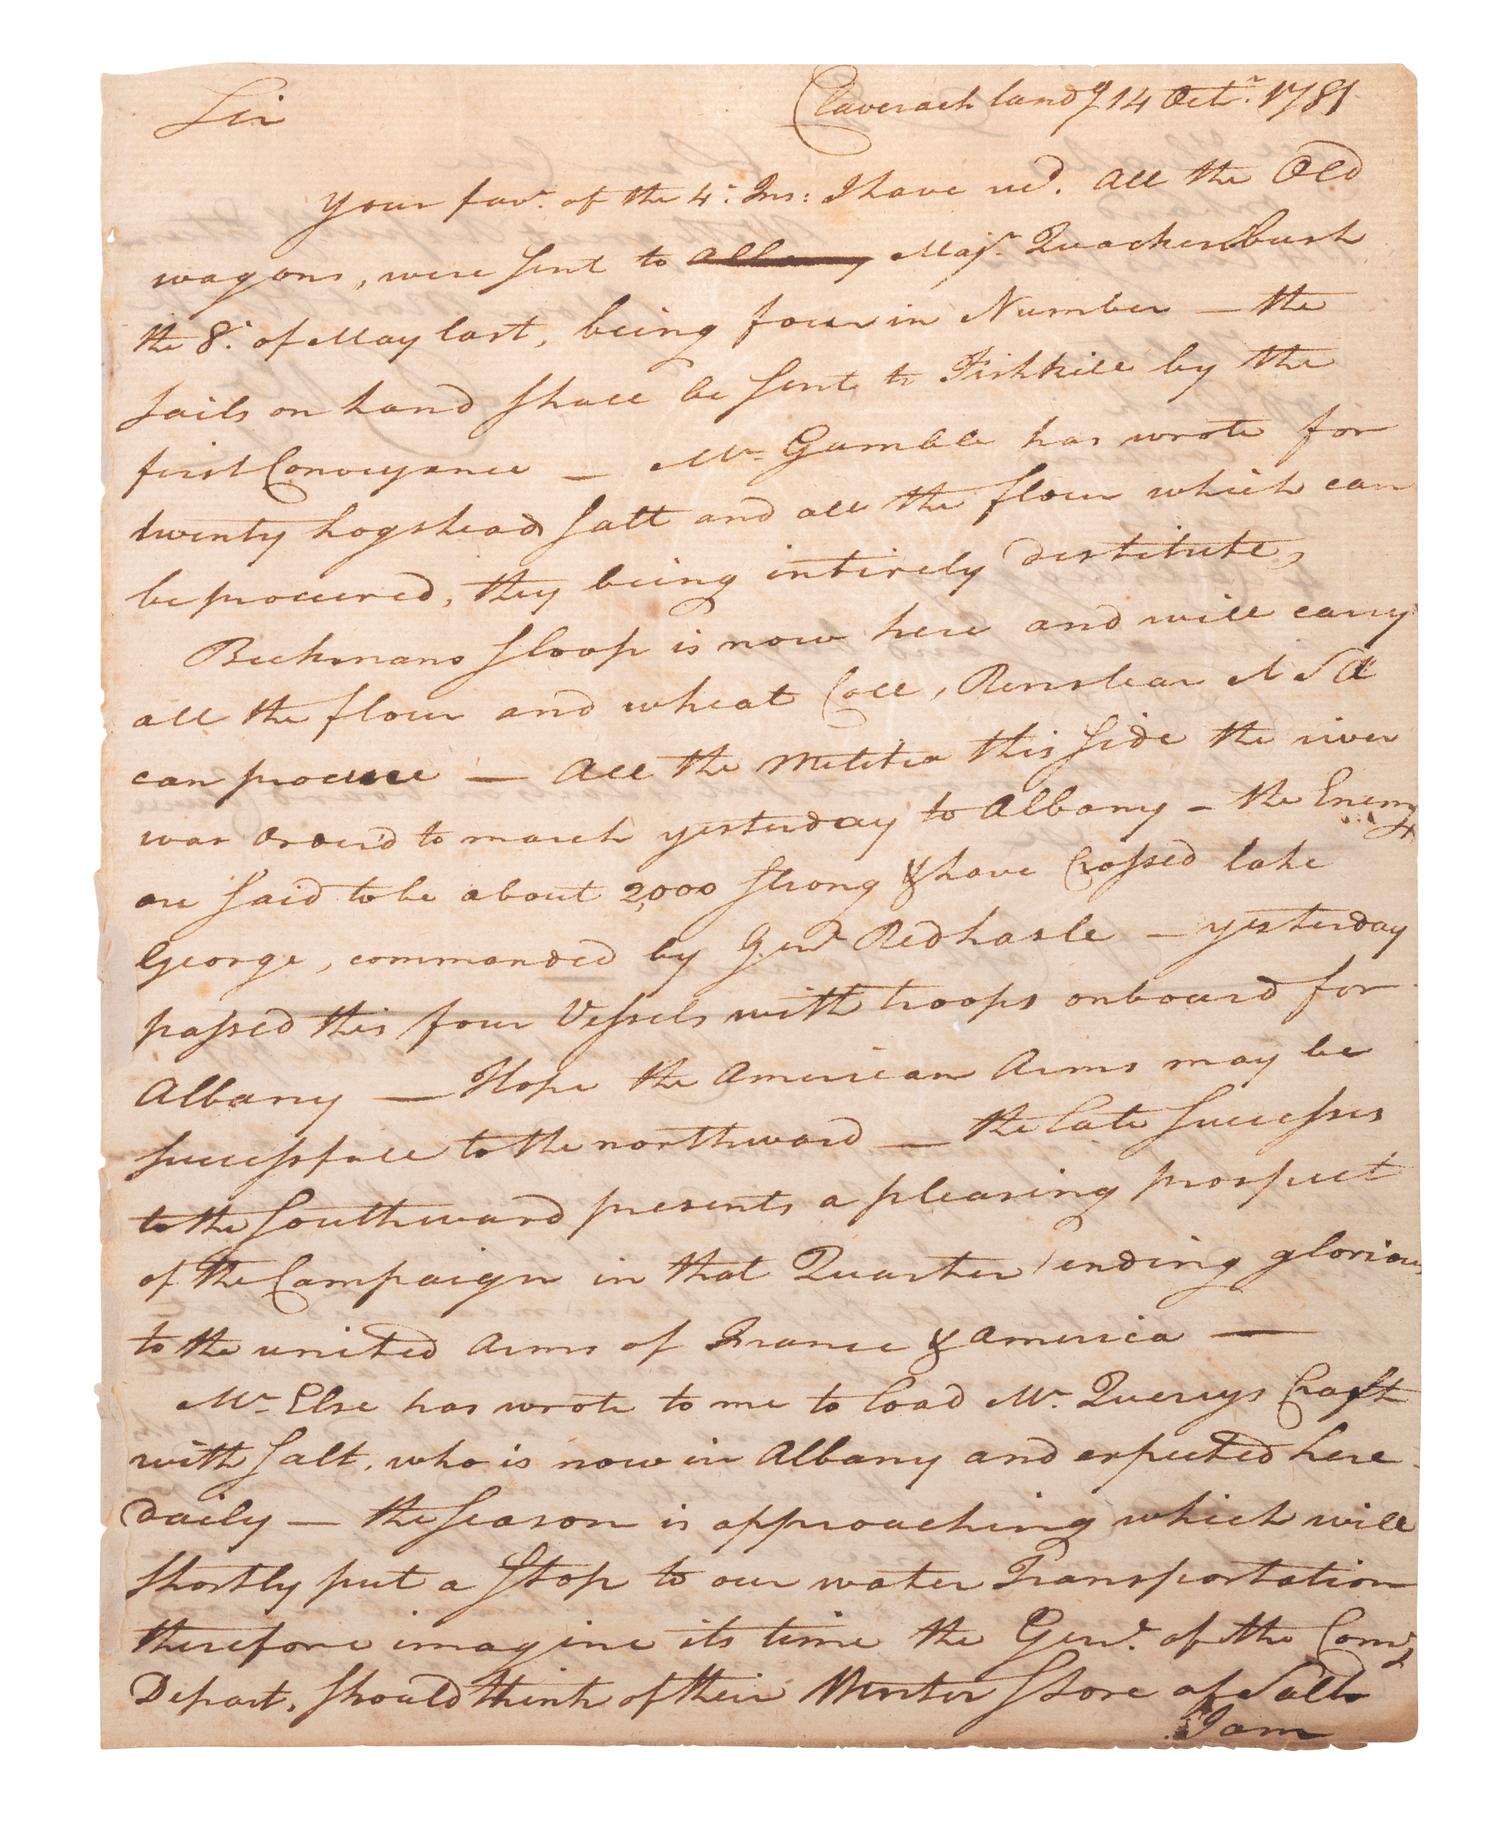 Claverack landg 14 Octr. 1781
Sir
Your favr. of the 4t. Ins: I have recd. All the Old
wagons, were sent to Albany Majr. Quackenbush
the 8t. of May last, being four in Number — the
sails on hand shall be sent to Fishkill by the
first Conveyance — Mr. Gamble has wrote for
twenty hogsheads salt and all the flour which can
be procured, they being intirely destitute,
Beekmans sloop is now here and will carry
all the flour and wheat Coll, Renslear
can procure — All the Militia this side the river
was order'd to march yesterday to Albany – the Enemy
are said to be about 2,000 strong & have Crossed lake
George, commanded by Genl. Redhasle — yesterday
passed this four Vessels with troops onboard for
Albany — Hope the American Arms may be
successfull to the northward — the late successes
to the Southward presents a pleasing prospect
of the Campaign in that Quarter ending glorious
to the united Arms of France & America —
Mr. Else has wrote to me to load Mr. Querrys Craft
with salt, who is now in Albany and expected here
daily — the season is approaching which will
shortly put a stop to our water Transportation
therefore imagine its time the Genl. of the Comy
Depart. should think of their Winter Store of Salt
I am